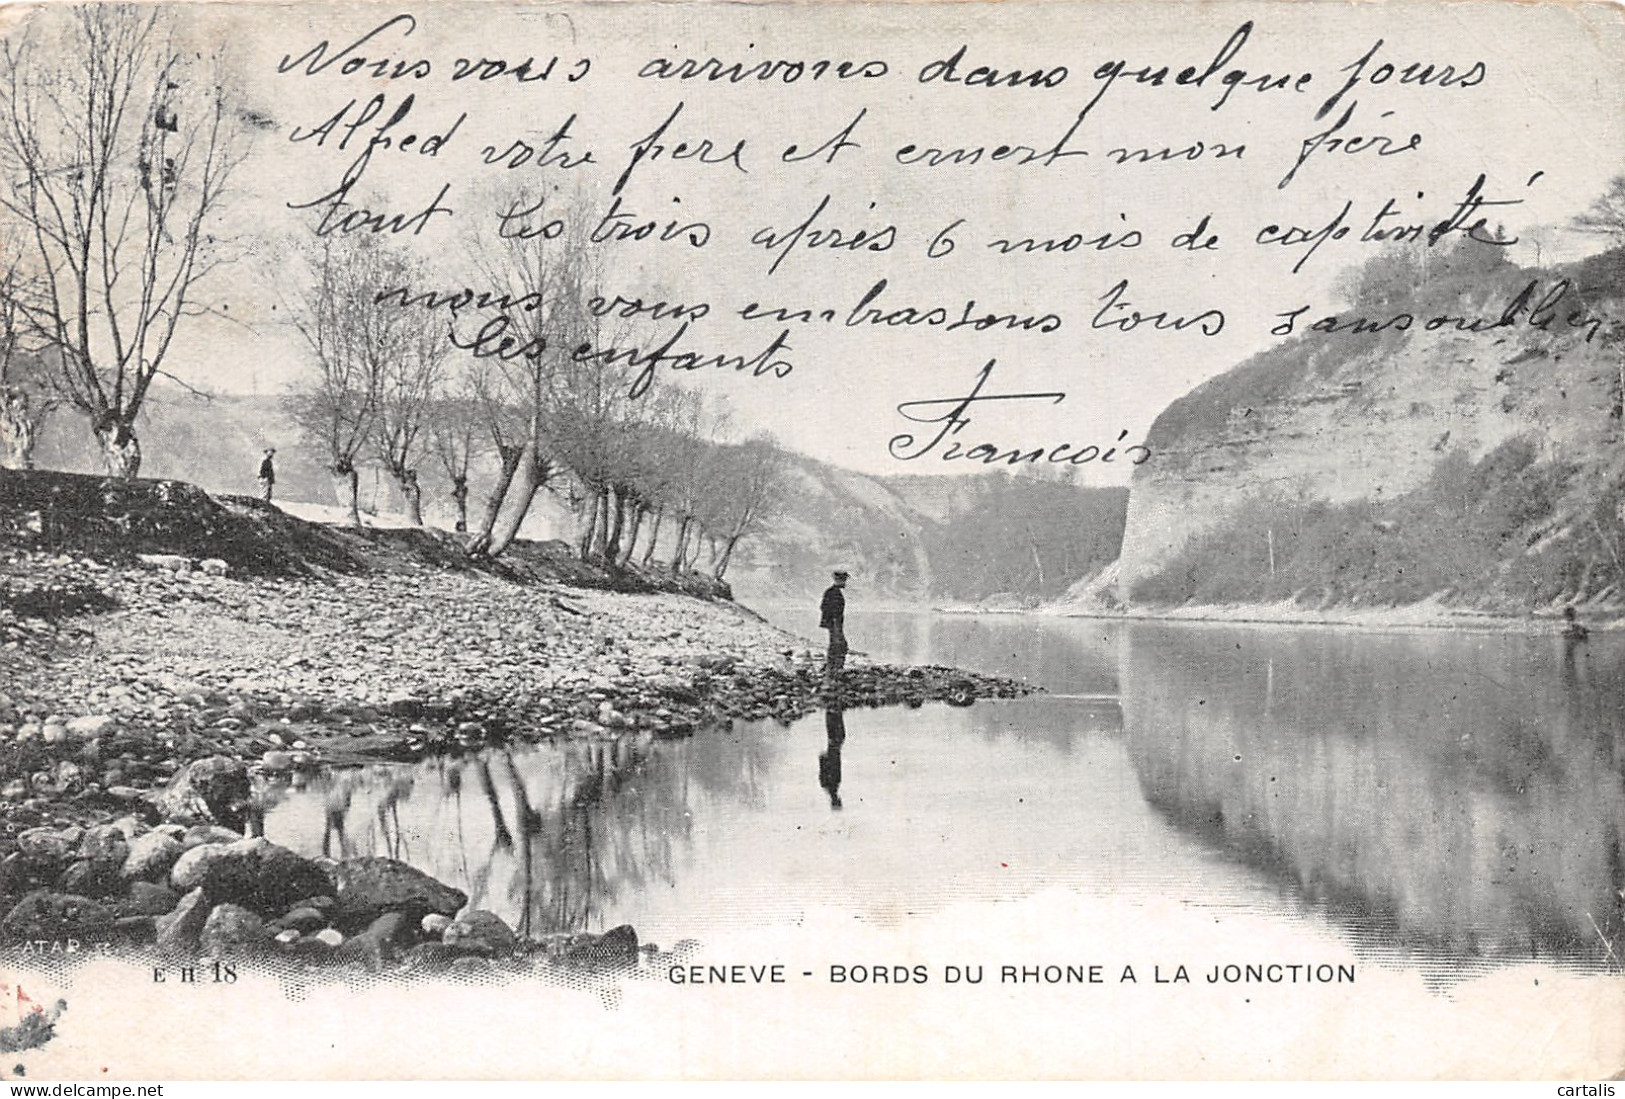 Nous vous arrivons dans quelque jours
Alfred votre frere et ernest mon frére
tout les trois aprés 6 mois de captivité
nous vous embrassons tous sans oublier
les enfants
Francois
ATAR
E H 18
GENEVE - BORDS DU RHONE A LA JONCTION
delcampe.net
cartalis